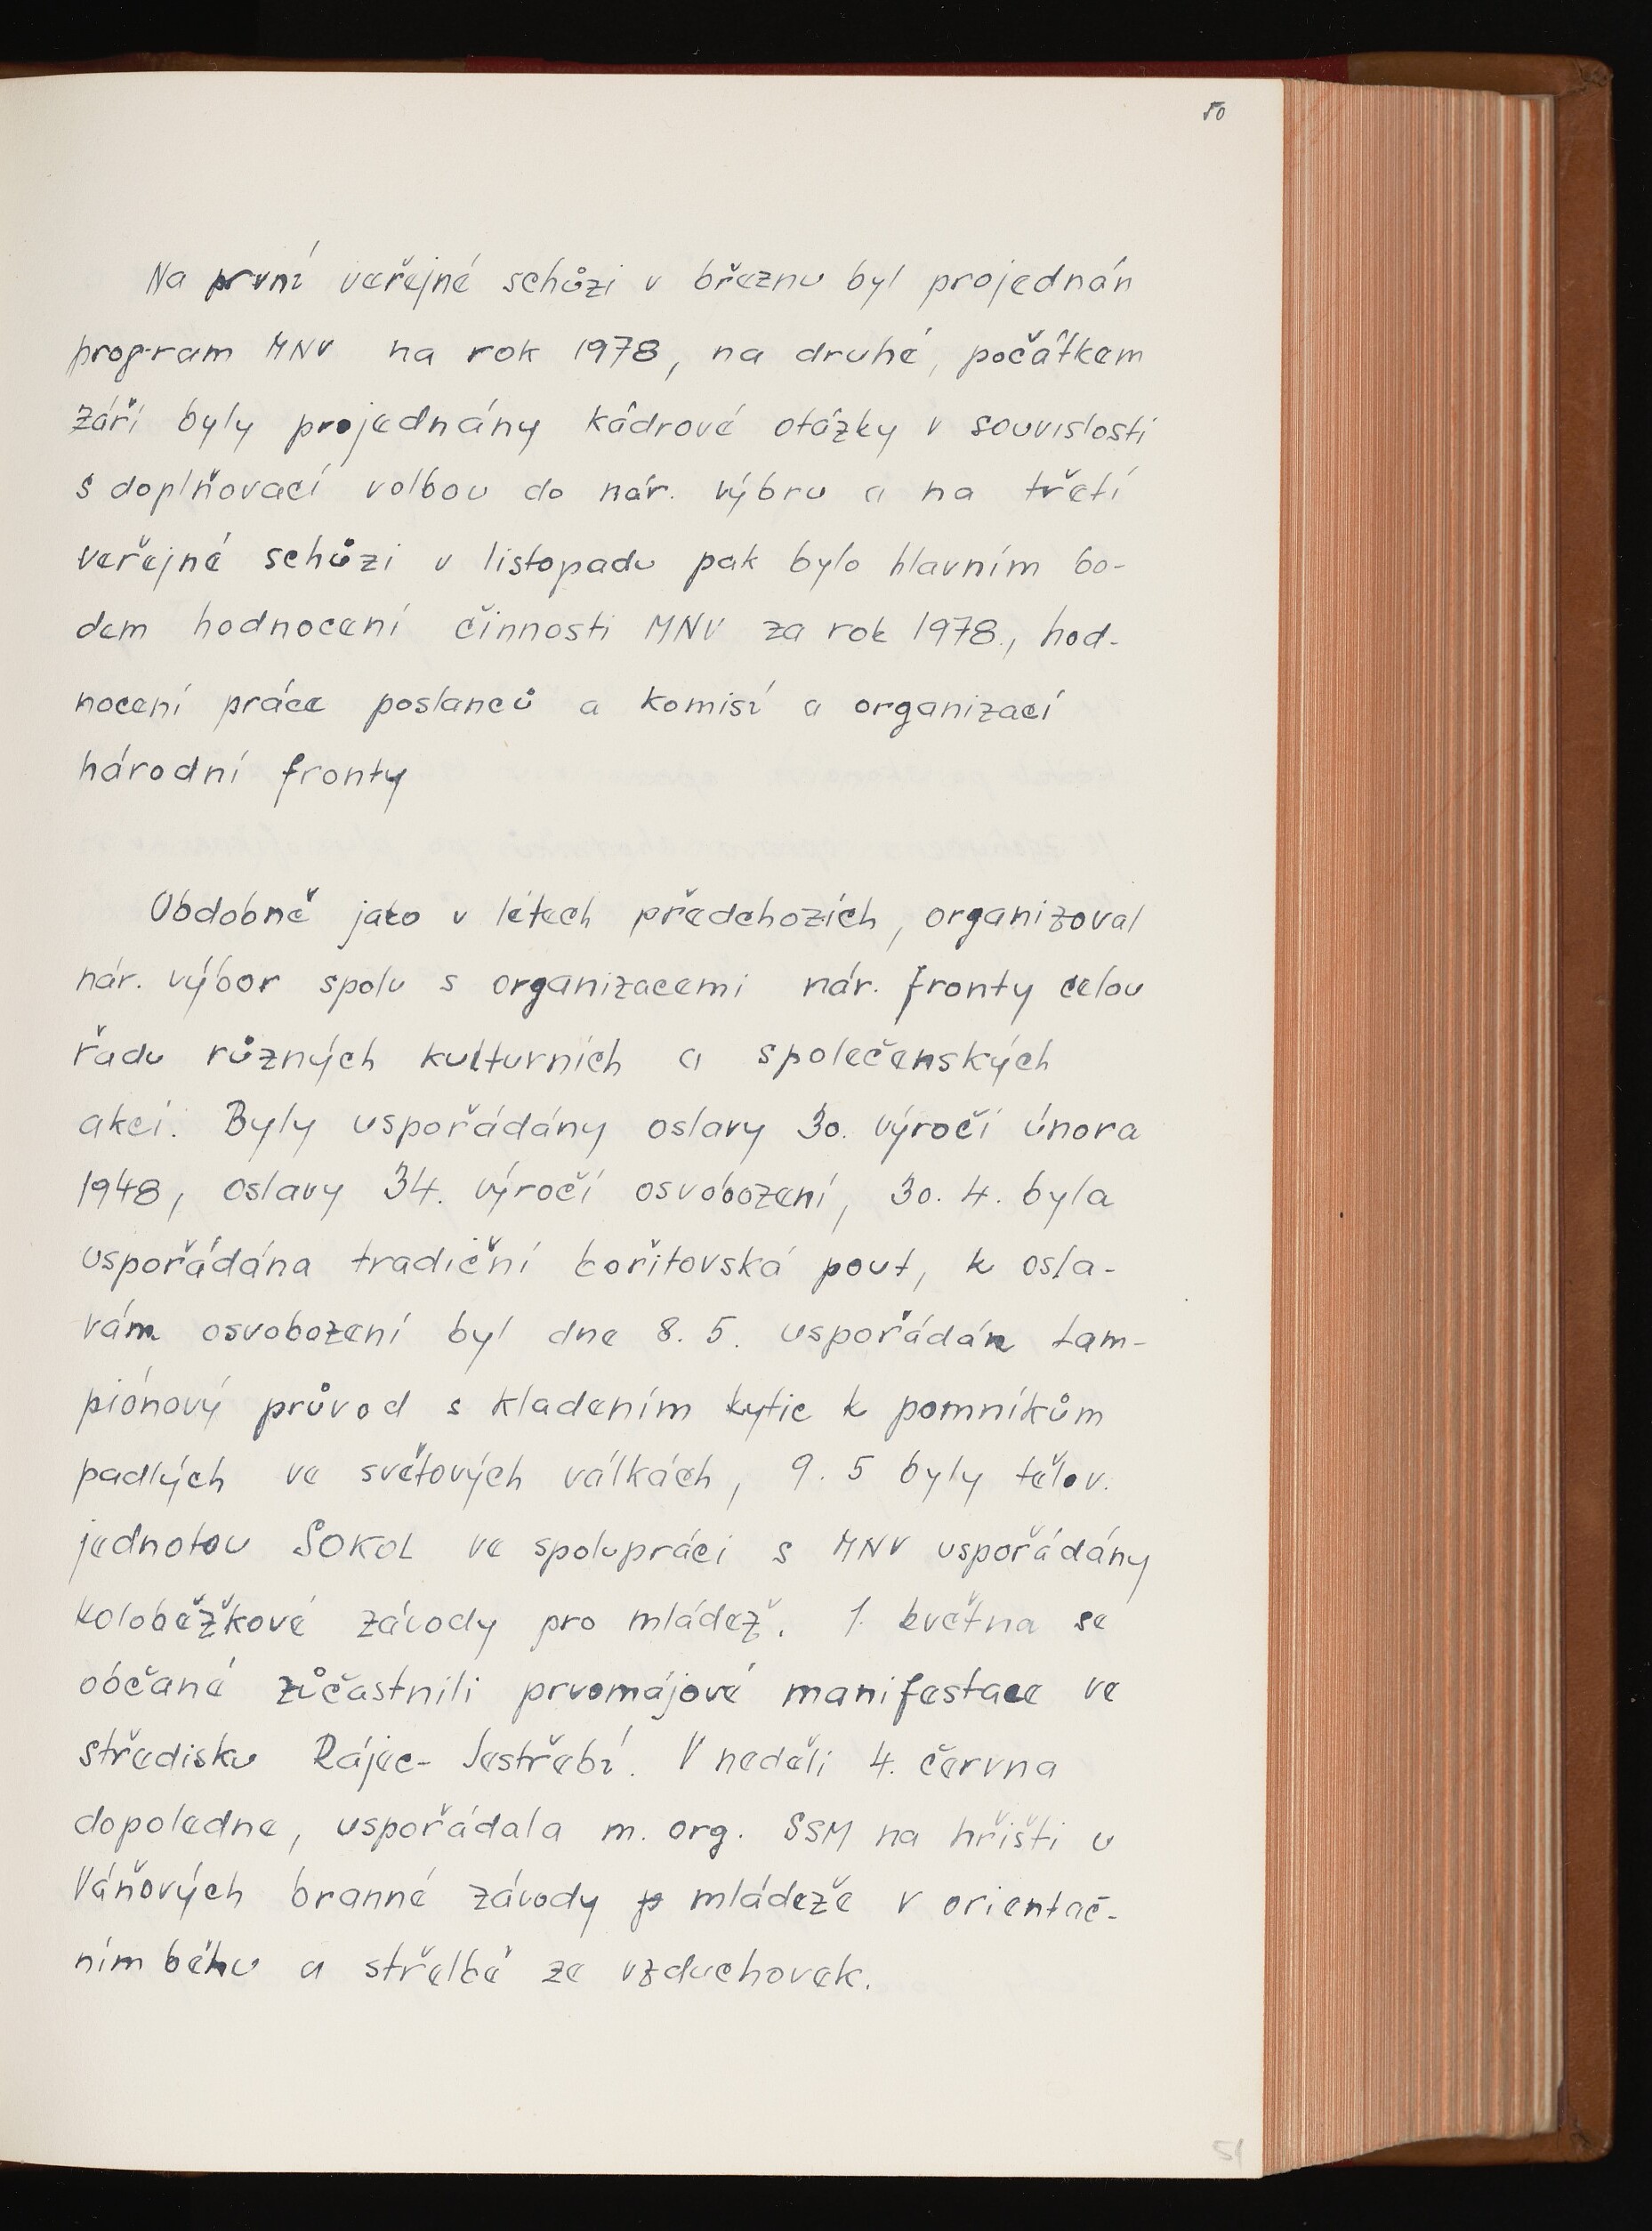 50
Na první veřejné schůzi v březnu byl projednán
program MNV na rok 1978, na druhé, počátkem
září byly projednány kádrové otázky v souvislosti
s doplňovací volbou do nár. výbru a na třetí
veřejné schůzi v listopadu pak bylo hlavním bo-
dem hodnocení činnosti MNV za rok 1978., hod-
nocení práce poslanců a komisí a organizací
národní fronty
Obdobně jako v létech předchozích, organizoval
nár. výbor spolu s organizacemi nár. fronty celou
řadu různých kulturních a společenských
akcí. Byly uspořádány oslavy 30. výročí února
1948, oslavy 34. výročí osvobození, 30. 4. byla
uspořádána tradiční bořitovská pout, k osla-
vám osvobození byl dne 8. 5. uspořádán lam-
piónový průvod s kladením kytic k pomníkům
padlých ve světových válkách, 9. 5 byly tělov.
jednotou SOKOL ve spolupráci s MNV uspořádány
koloběžkové závody pro mládež. 1. května se
občané zůčastnili prvomájové manifestace ve
středisku Rájec- Jestřebí. V neděli 4. června
dopoledne, uspořádala m. org. SSM na hřišti u
Váňových branné závody p mládeže v orientač-
ním běhu a střelbě ze vzduchovek.
51